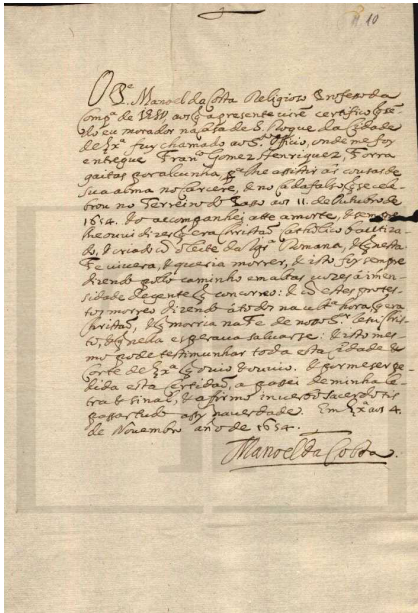 10
O P.e Manoel da Costa Religioso Professo da
Comp.a de IESV, aos q̃ a presente virẽ certifico q̃ sẽ-
do eu morador na Casa de S. Roque da Cidade
de Lx.a fuy chamado ao S.to Officio, onde me foy
entregue Fran.co Gomez Henriquez, Forra
gaitas por alcunha, p.a lhe assistir às cousas de
sua alma no carcere, e no cadafalso q̃ se cele-
brou no Terreiro do Paço aos 11. de Outubro de
1654. E o acompanhei atte a morte, e sempre
lhe ouvi dizer q̃ era christaõ catholico bautiza-
do, e criado cõ o leite da Igr.a Romana, e q̃ nesta
Fe vivera, e queria morrer, e isto foy sempre
dizendo polo caminho em altas vozes à imen-
sidade de gente q̃ concorreo: e cõ estes protes-
tos morreo dizendo à todos na ult.a hora q̃ era
christaõ, e q̃ morria na Fe de nosso S.r Jesu Chris-
to, e q̃ nella esperava salvarse: e isto mes-
mo pode testimunhar toda esta Cidade e
Corte de Lx.a q̃ o vio e ouvio. E por me ser pe-
dida esta certidaõ, a passei de minha le-
tra e sinal, e afirmo in verbo sacerdotis
passar tudo assy na verdade. Em Lx.a aos 4.
de Novembro año de 1654.
Manoel da Costa.